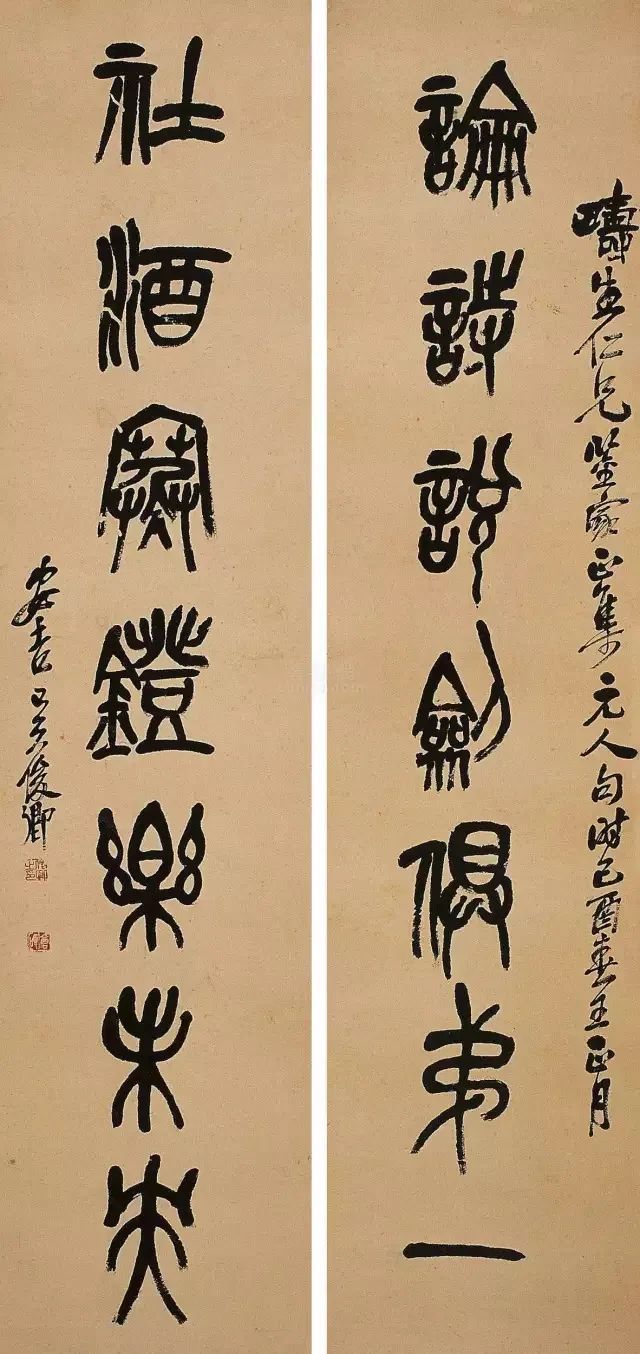 疇生仁兄鑒家正集元人句時己酉春王正月
論詩說劍俱弟一
社酒寒鐙樂未央
安吉吳俊卿